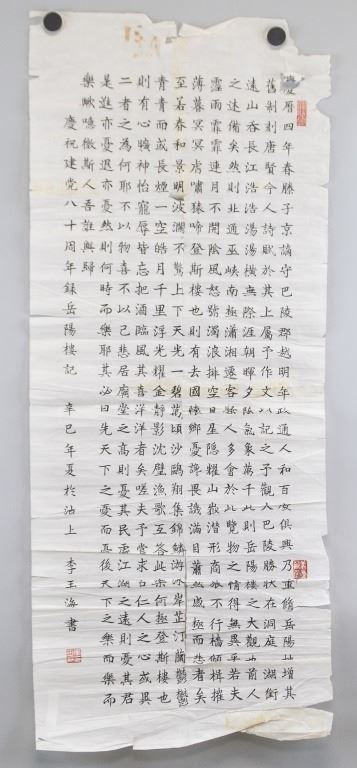 慶曆四年春滕子京謫守巴陵郡越明年政通人和百廢俱興乃重脩岳陽樓增其
舊制刻唐賢今人詩賦於其上屬予作文以記之予觀夫巴陵勝狀在洞庭一湖銜
遠山吞長江浩浩湯湯橫無際涯朝暉夕陰氣象萬千此則岳陽樓之大觀也前人
之述備矣然則北通巫峽南極瀟湘遷客騷人多會於此覽物之情得無異乎若夫
霪雨霏霏連月不開陰風怒號濁浪排空日星隱耀山岳潛形商旅不行檣傾楫摧
薄暮冥冥虎嘯猿啼登斯樓也則有去國懷鄉憂讒畏譏滿目蕭然感極而悲者矣
至若春和景明波瀾不驚上下天光一碧萬頃沙鷗翔集錦鱗游泳岸芷汀蘭鬱鬱
青青而或長煙一空皓月千里浮光耀金靜影沉璧漁歌互答此樂何極登斯樓也
則有心曠神怡寵辱皆忘把酒臨風其喜洋洋者矣嗟夫予嘗求古仁人之心或異
二者之為何耶不以物喜不以己悲居廟堂之高則憂其民處江湖之遠則憂其君
是進亦憂退亦憂然則何時而樂耶其必曰先天下之憂而憂後天下之樂而樂而
樂歟噫微斯人吾誰與歸
慶祝建党八十周年錄岳陽樓記 辛巳年夏於沽上 李玉海書